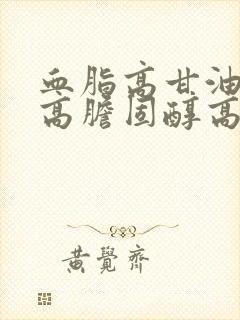 血脂高甘油
高膽固醇高
黃覺齊